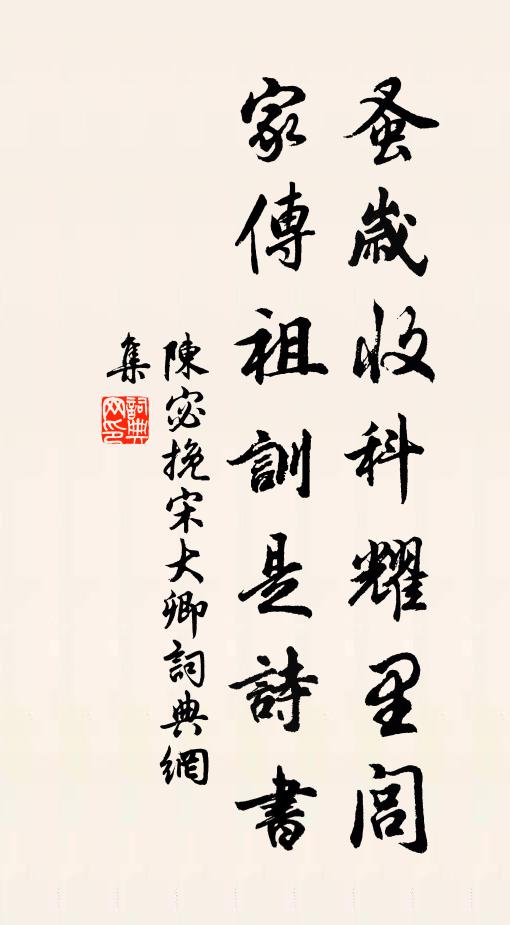 蚤歲收科耀里閭
家傳祖訓是詩書
陳宓挽宋大卿詞典網
集
詞典
网印